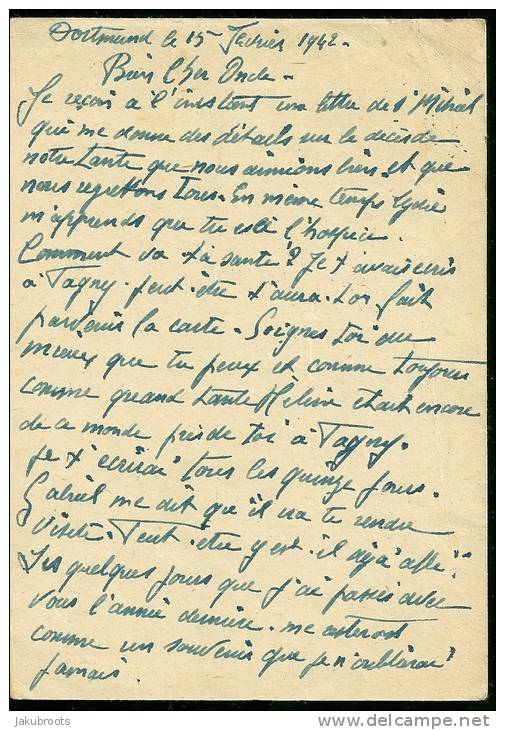 Dortmund le 15 Février 1942-
Bien Cher Oncle-
Je reçois à l'instant une lettre de St Mihiel
qui me donne des détails sur le décès de
notre tante que nous aimions bien, et que
nous regrettons tous. En même temps Lydie
m'apprends que tu es à l'hospice.
Comment va ta santé? Je t'avais écris
à Tagny. peut être t'aura-t-on fait
parvenir la carte. Soignes toi du
mieux que tu peux et comme toujours
comme quand tante Hélène était encore
de ce monde près de toi à Tagny.
Je t'écrirai tous les quinze jours.
Gabriel me dit que il ira te rendre
visite. Peut-être y est-il déjà allé?
Les quelques jours que j'ai passés avec
vous l'année dernière. me resteront
comme un souvenir que je n'oublierai
jamais.
jakubroots
www.delcampe.net